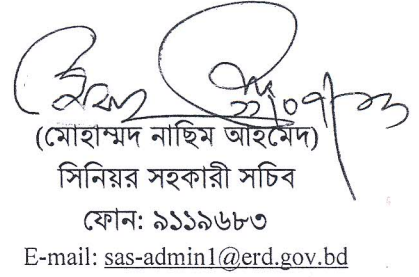 (মোহাম্মদ নাছিম আহমেদ)
সিনিয়র সহকারী সচিব
ফোন: ৯১১৯৬৮৩
E-mail: sas-admin1@erd.gov.bd